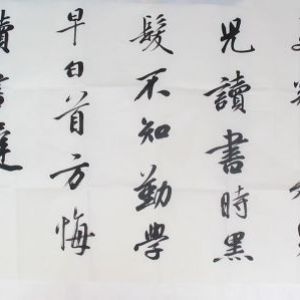 兒讀書時黑
髮不知勤學
早白首方悔
讀書遲